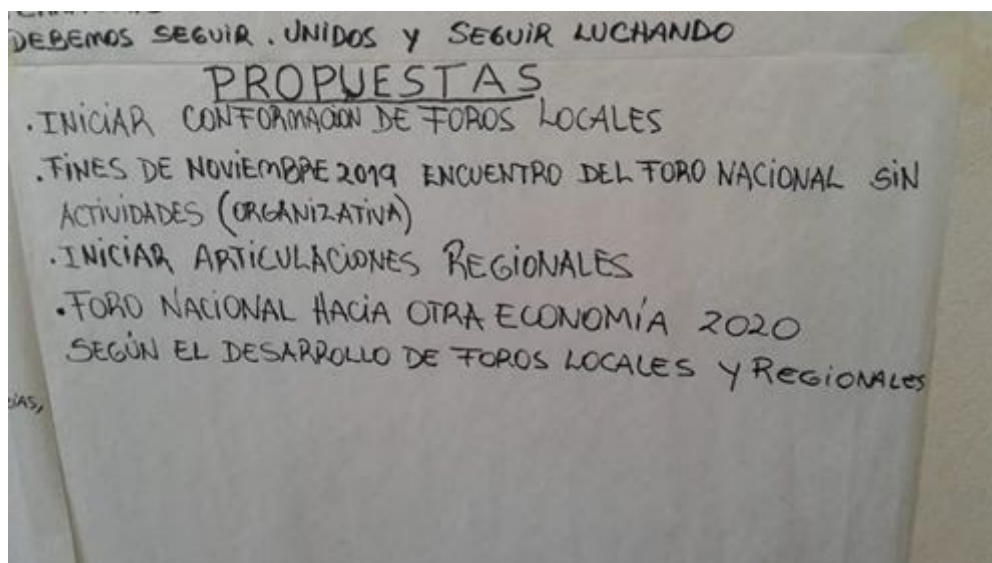 DEBEMOS SEGUIR . UNIDOS Y SEGUIR LUCHANDO
PROPUESTAS
. INICIAR CONFORMACION DE FOROS LOCALES
. FINES DE NOVIEMBRE 2019 ENCUENTRO DEL FORO NACIONAL SIN
ACTIVIDADES (ORGANIZATIVA)
. INICIAR ARTICULACIONES REGIONALES
. FORO NACIONAL HACIA OTRA ECONOMÍA 2020
SEGÚN EL DESARROLLO DE FOROS LOCALES Y REGIONALES